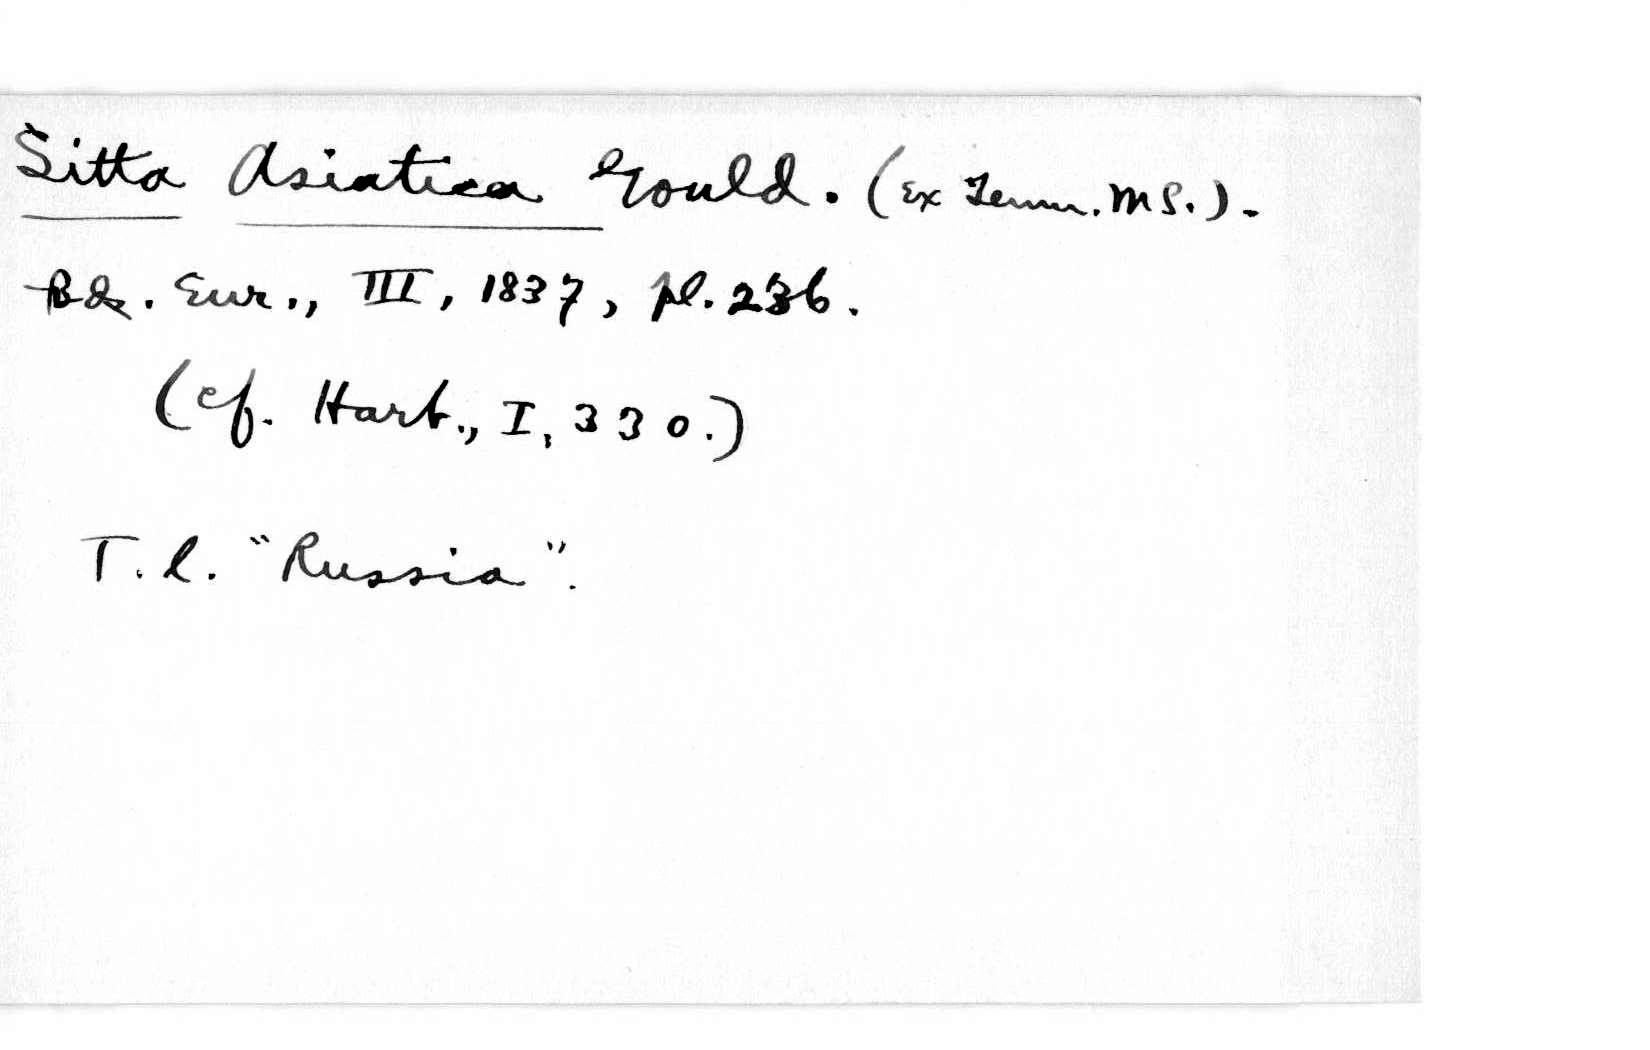 Sitta Asiatica Gould. (Ex Temm. MS.).
Bds. Eur., III, 1837, pl. 236.
(cf. Hart., I, 330.)
T. l. "Russia".